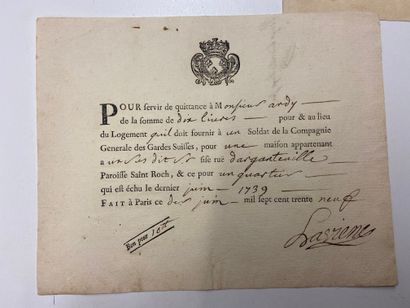 POUR servir de quittance à Monsieur ardy
de la somme de dix livres pour & au lieu
du Logement quil doit fournir à un Soldat de la Compagnie
Generale des Gardes Suisses, pour une maison appartenant
a sise ruë darganteuille
Paroisse Saint Roch, & ce pour un quartier
qui est échu le dernier juin 1739
FAIT à Paris ce juin mil sept cent trente neuf
Bon pour